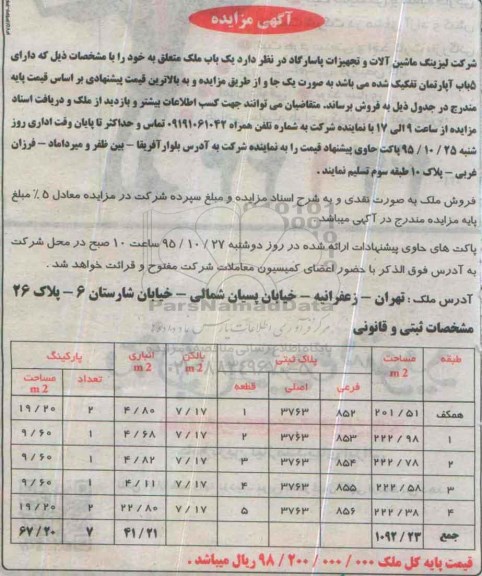 آگهی مزایده
شرکت لیزینگ ماشین آلات و تجهیزات پاسارگاد در نظر دارد یک باب ملک متعلق به خود را با مشخصات ذیل که دارای
۵باب آپارتمان تفکیک شده می باشد به صورت یک جا و از طریق مزایده و به بالاترین قیمت پیشنهادی بر اساس قیمت پایه
مندرج در جدول ذیل به فروش برساند. متقاضیان می توانند جهت کسب اطلاعات بیشتر و بازدید از ملک و دریافت اسناد
مزایده از ساعت ۹ الی ۱۷ با نماینده شرکت به شماره تلفن همراه ۰۹۱۹۱۰۶۱۰۴۲ تماس و حداکثر تا پایان وقت اداری روز
شنبه ۲۵ / ۱۰ / ۹۵ پاکت حاوی پیشنهاد قیمت را به نماینده شرکت به آدرس بلوار آفریقا – بین ظفر و میرداماد – فرزان
غربی – پلاک ۱۰ طبقه سوم تسلیم نمایند .
فروش ملک به صورت نقدی و به شرح اسناد مزایده و مبلغ سپرده شرکت در مزایده معادل ۵ ٪ مبلغ
پایه مزایده مندرج در آگهی میباشد.
پاکت های حاوی پیشنهادات ارائه شده در روز دوشنبه ۲۷ / ۱۰ / ۹۵ ساعت ۱۰ صبح در محل شرکت
به آدرس فوق الذکر با حضور اعضای کمیسیون معاملات شرکت مفتوح و قرائت خواهد شد .
آدرس ملک : تهران – زعفرانیه – خیابان پسیان شمالی – خیابان شارستان ۶ – پلاک ۲۶
ParsNamadData
مشخصات ثبتی و قانونی
طبقه مساحت m2 پلاک ثبتی بالکن m2 انباری m2 پارکینگ
فرعی اصلی قطعه تعداد مساحت m2
همکف ۲۰۱ / ۵۱ ۸۵۲ ۳۷۶۳ ۱ ۷ / ۱۷ ۴ / ۸۰ ۲ ۱۹ / ۲۰
۱ ۲۲۲ / ۹۸ ۸۵۳ ۳۷۶۳ ۲ ۷ / ۱۷ ۴ / ۶۸ ۱ ۹ / ۶۰
۲ ۲۲۲ / ۷۸ ۸۵۴ ۳۷۶۳ ۳ ۷ / ۱۷ ۴ / ۸۲ ۱ ۹ / ۶۰
۳ ۲۲۲ / ۵۸ ۸۵۵ ۳۷۶۳ ۴ ۷ / ۱۷ ۴ / ۱۱ ۱ ۹ / ۶۰
۴ ۲۲۲ / ۳۸ ۸۵۶ ۳۷۶۳ ۵ ۷ / ۱۷ ۲۲ / ۸۰ ۲ ۱۹ / ۲۰
جمع ۱۰۹۲ / ۲۳ ۴۱ / ۲۱ ۷ ۶۷ / ۲۰
قیمت پایه کل ملک ۰۰۰ / ۰۰۰ / ۲۰۰ / ۹۸ ریال میباشد .